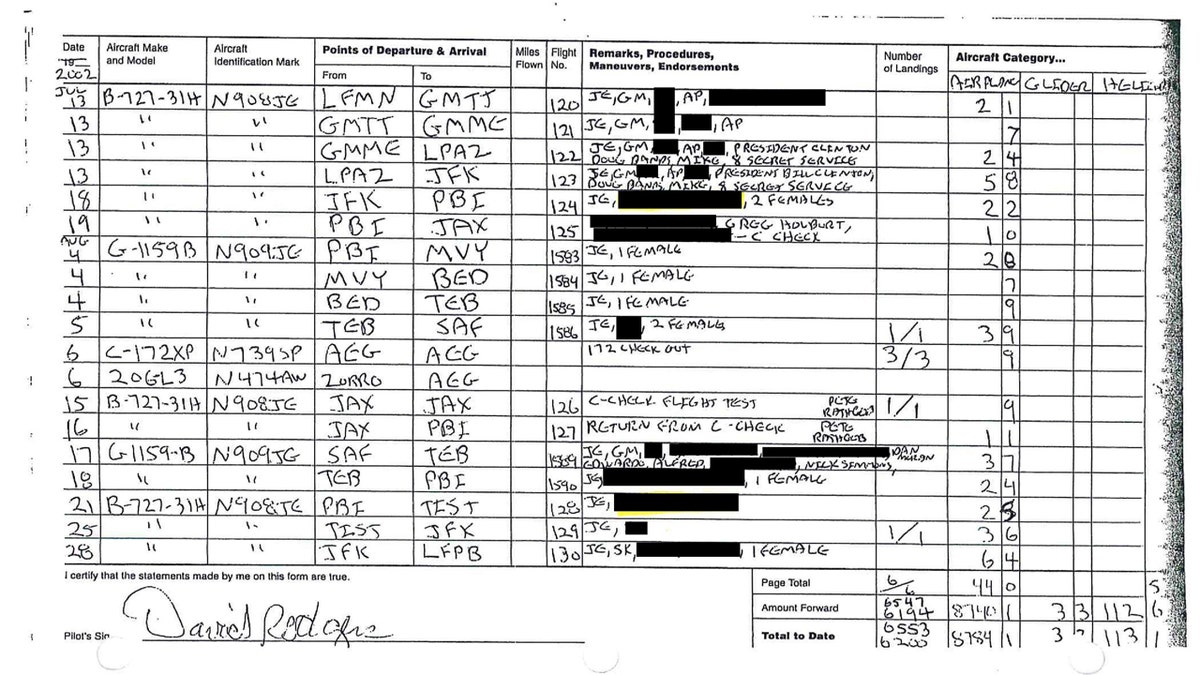 Date Aircraft Make and Model Aircraft Identification Mark Points of Departure & Arrival Miles Flown Flight No. Remarks, Procedures, Maneuvers, Endorsements Number of Landings Aircraft Category...
2002 From To AIRPLANE GLIDER
JUL 13 B-727-31H N908JE LFMN GMTT 120 JE, GM, , AP, 2 1
13 " " GMTT GMME 121 JE, GM, , , AP 7
13 " " GMME LPAZ 122 JE, GM, , AP, , PRESIDENT CLINTON 2 4
DOUG BANDS, MIKE, 8 SECRET SERVICE
13 " " LPAZ JFK 123 JE, GM, , AP, , PRESIDENT BILL CLINTON, 5 8
DOUG BANDS, MIKE, 8 SECRET SERVICE
18 " " JFK PBI 124 JE, , 2 FEMALES 2 2
19 " " PBI JAX 125 GREG HOLBERT, 1 0
- C CHECK
AUG 4 G-1159B N909JE PBI MVY 1583 JE, 1 FEMALE 2 8
4 " " MVY BED 1584 JE, 1 FEMALE 7
4 " " BED TEB 1585 JE, 1 FEMALE 9
5 " " TEB SAF 1586 JE, , 2 FEMALES 1/1 3 9
6 C-172XP N739SP AEG AEG 172 CHECK OUT 3/3 9
6 206L3 N474AW ZORRO AEG
15 B-727-31H N908JE JAX JAX 126 C-CHECK FLIGHT TEST PETE RATHGEB 1/1 9
16 " " JAX PBI 127 RETURN FROM C-CHECK PETE RATHGEB 1 1
17 G-1159-B N909JE SAF TEB 1589 JE, GM, , , , DAN 3 7
EDWARDO, ALFRED, , NICK SIMMONS,
18 " " TEB PBI 1590 JE, , 1 FEMALE 2 4
21 B-727-31H N908JE PBI TEST 128 JE, 2
25 " " TEST JFK 129 JE, 1/1 3 6
28 " " JFK LFPB 130 JE, SK, , 1 FEMALE 6 4
I certify that the statements made by me on this form are true. Page Total 6/6 44 0 5
Amount Forward 6547 6194 8740 1 3 3 112 6
Pilot's David Rodgers Total to Date 6553 6200 8784 1 3 113 1